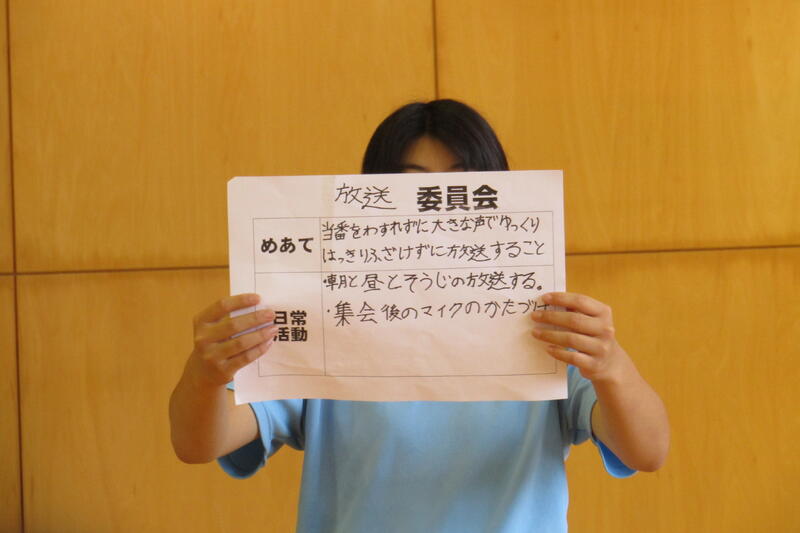 放送 委員会
めあて
当番をわすれずに大きな声でゆっくり
はっきりふざけずに放送すること
日常
活動
・朝と昼とそうじの放送する。
・集会後のマイクのかたづけ